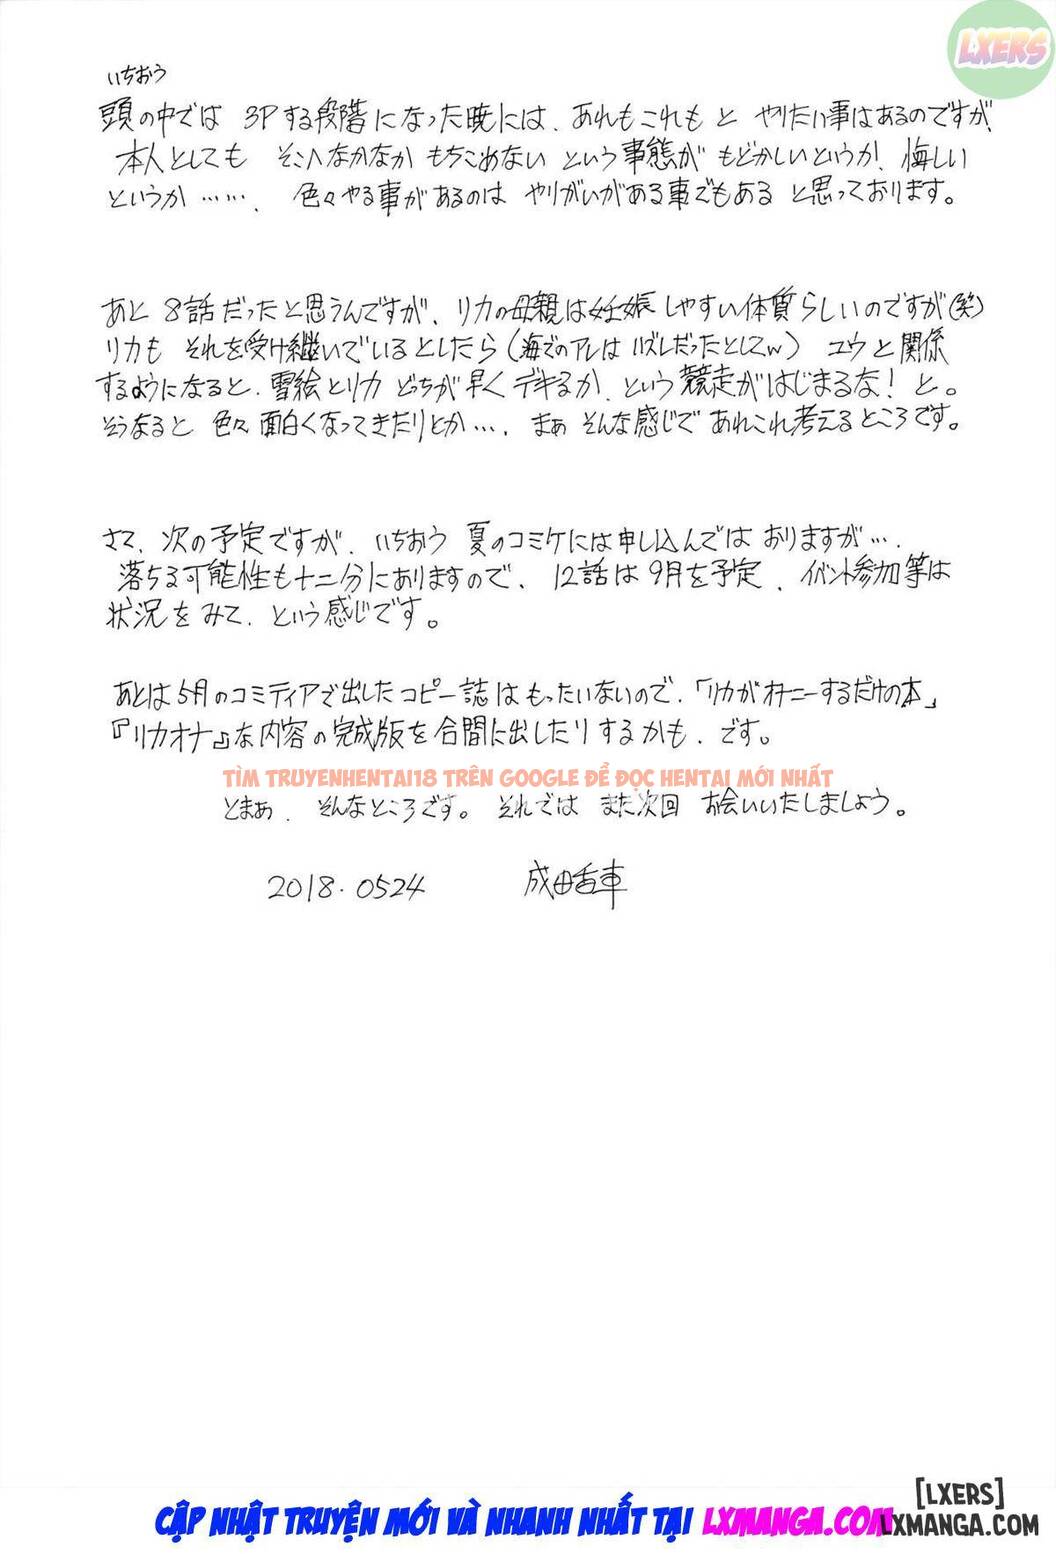 LXERS
いちおう
頭の中では 3Pする段階になった暁には、あれもこれもと やりたい事はあるのですが、
本人としても そこへなかなか もちこめない という事態が もどかしいというか! 悔しい
というか……、色々やる事があるのは やりがいがある事でもある と思っております。
あと 8話だったと思うんですが、リカの母親は妊娠しやすい体質らしいのですが(笑)
リカも それを受け継いでいるとしたら(海でのアレは ハズレだったとしてw) ユウと関係
するようになると、雪絵とリカ どっちが早く デキるか、という 競走がはじまるな! と。
そうなると 色々 面白くなってきたりとか…、まぁ そんな感じで あれこれ考えるところです。
さて、次の予定ですが、いちおう 夏のコミケには申し込んでは おりますが…、
落ちる可能性も十二分にありますので、12話は9月を予定、イベント参加等は
状況をみて、という感じです。
あとは5月のコミティアで出したコピー誌はもったいないので、「リカがオナニーするだけの本」
『リカオナ』な内容の完成版を合間に出したりするかも、です。
TÌM TRUYENHENTAI18 TRÊN GOOGLE ĐỂ ĐỌC HENTAI MỚI NHẤT
とまぁ、そんなところです。それでは また次回 お会いいたしましょう。
2018.0524 成田香車
[LXERS]
CẬP NHẬT TRUYỆN MỚI VÀ NHANH NHẤT TẠI LXMANGA.COM
LXMANGA.COM